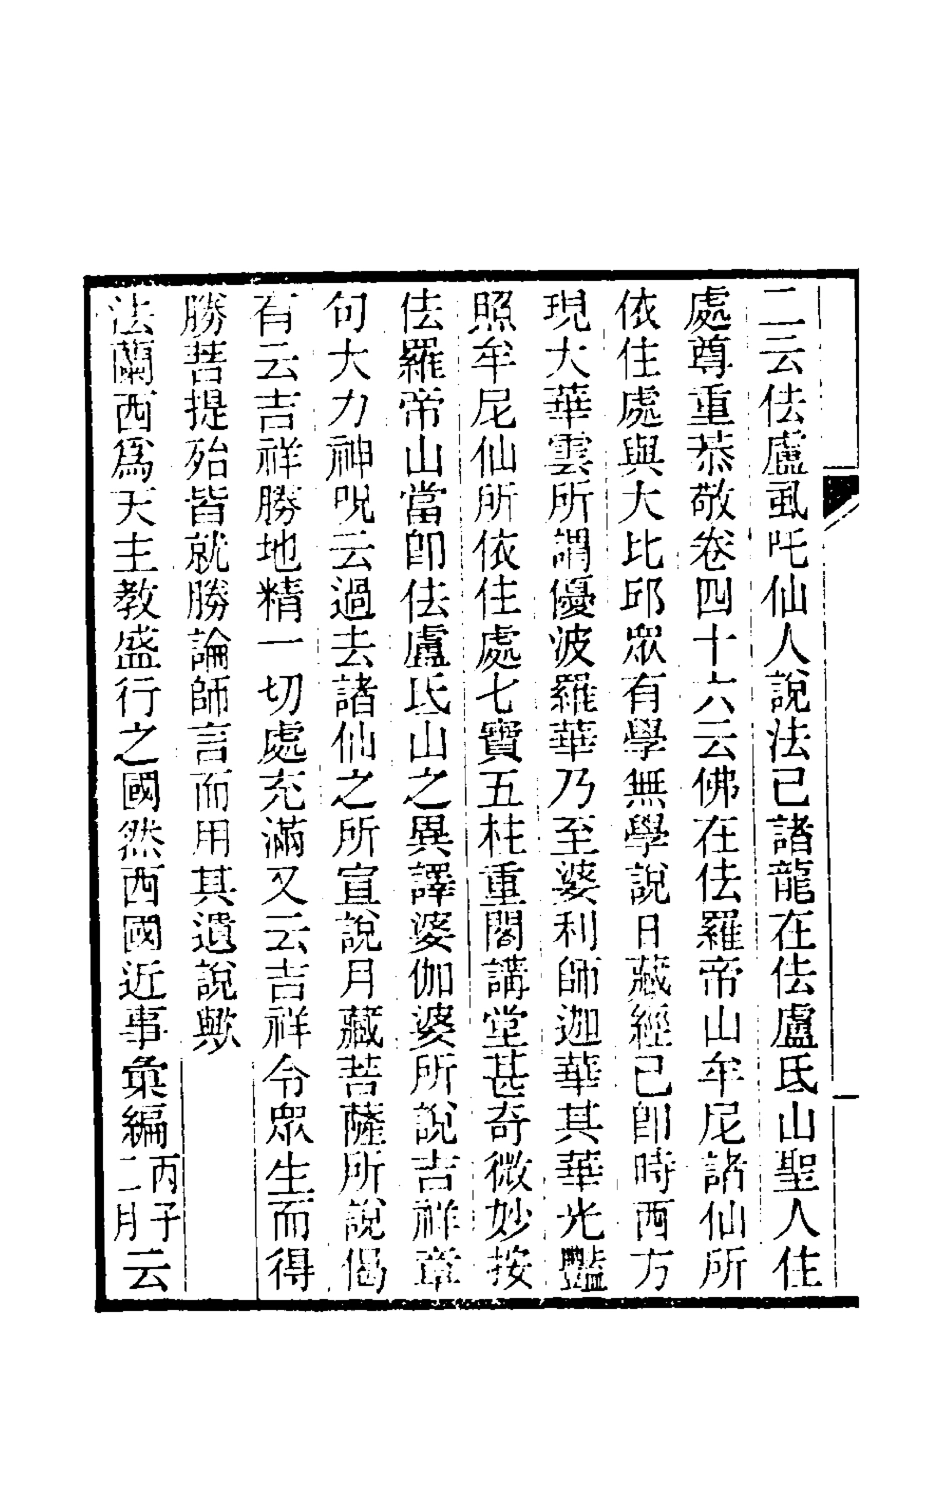 二云佉盧虱吒仙人說法已諸龍在佉盧氐山聖人住
處尊重恭敬卷四十六云佛在佉羅帝山牟尼諸仙所
依住處與大比邱眾有學無學說日藏經已卽時西方
現大華雲所謂優波羅華乃至婆利師迦華其華光豔
照牟尼仙所依住處七寶五柱重閣講堂甚奇微妙按
佉羅帝山當卽佉盧氐山之異譯婆伽婆所說吉祥章
句大力神呪云過去諸仙之所宣說月藏菩薩所說偈
有云吉祥勝地精一切處充滿又云吉祥令眾生而得
勝菩提殆皆就勝論師言而用其遺說歟
法蘭西爲天主教盛行之國然西國近事彙編丙子二月云